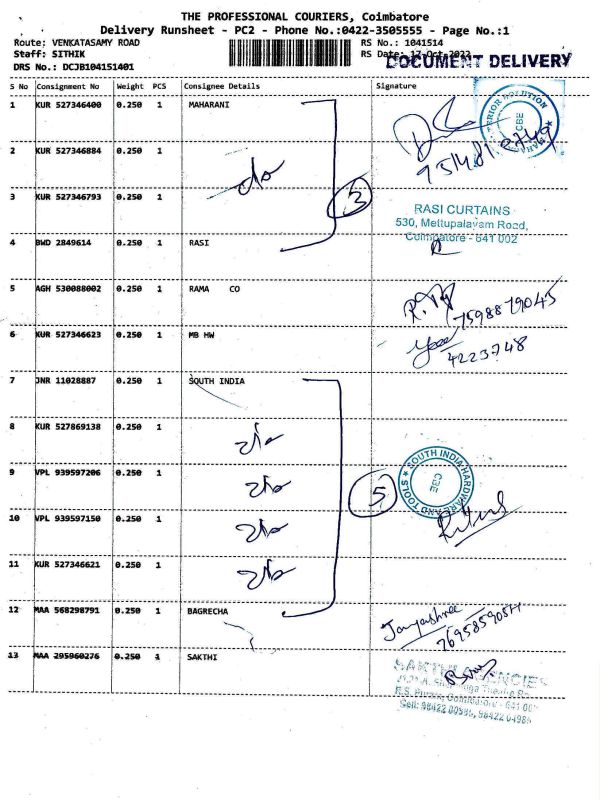 THE PROFESSIONAL COURIERS, Coimbatore
Delivery Runsheet - PC2 - Phone No.:0422-3505555 - Page No.:1
Route: VENKATASAMY ROAD RS No.: 1041514
Staff: SITHIK RS Date: 17-Oct-2022
DOCUMENT DELIVERY
DRS No.: DCJB104151401
S No Consignment No Weight PCS Consignee Details Signature
1 KUR 527346400 0.250 1 MAHARANI
2 KUR 527346884 0.250 1 do
3 KUR 527346793 0.250 1
3
RASI CURTAINS
530, Mettupalayam Road,
Coimbatore - 641 002
4 BWD 2849614 0.250 1 RASI
5 AGH 530088002 0.250 1 RAMA CO
7598879045
6 KUR 527346623 0.250 1 MB HW
4223748
7 JNR 11028887 0.250 1 SOUTH INDIA
8 KUR 527869138 0.250 1 do
9 VPL 939597206 0.250 1 do
5
SOUTH INDIA HARDWARE AND TOOLS
CBE
10 VPL 939597150 0.250 1 do
11 KUR 527346621 0.250 1 do
12 MAA 568298791 0.250 1 BAGRECHA
Jayashree
13 MAA 295960276 0.250 1 SAKTHI
SAKTHI AGENCIES